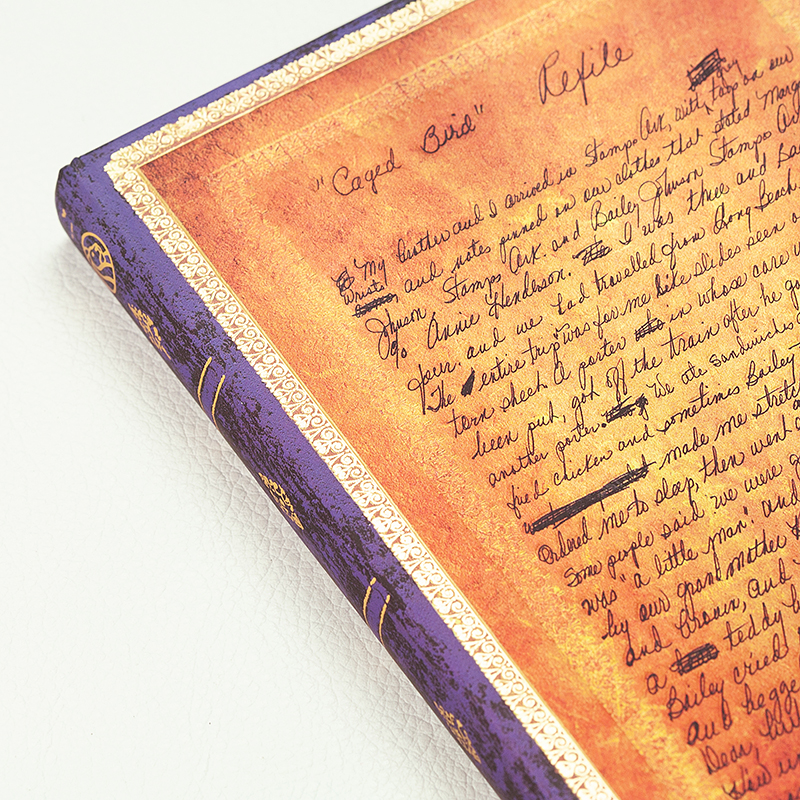 "Caged Bird" Refile
"My brother and I arrived in Stamps Ark, with tags on our
wrists and notes pinned on our clothes that stated "Marg
Johnson Stamps Ark. and Bailey Johnson Stamps Ark
c/o Annie Henderson. I was three and Bai
four. and we had travelled from Long Beach
The entire trip was for me like slides seen o
torn sheet. A porter in whose care w
been put, got off the train after he go
another porter. We ate sandwiches
fried chicken and sometimes Bailey
made me stretc
Ordered me to sleep, then went
Some people said we were go
was "a little man." and
by our grandmother
and brown, and
a teddy b
Bailey cried
and hugge
Dear,
How